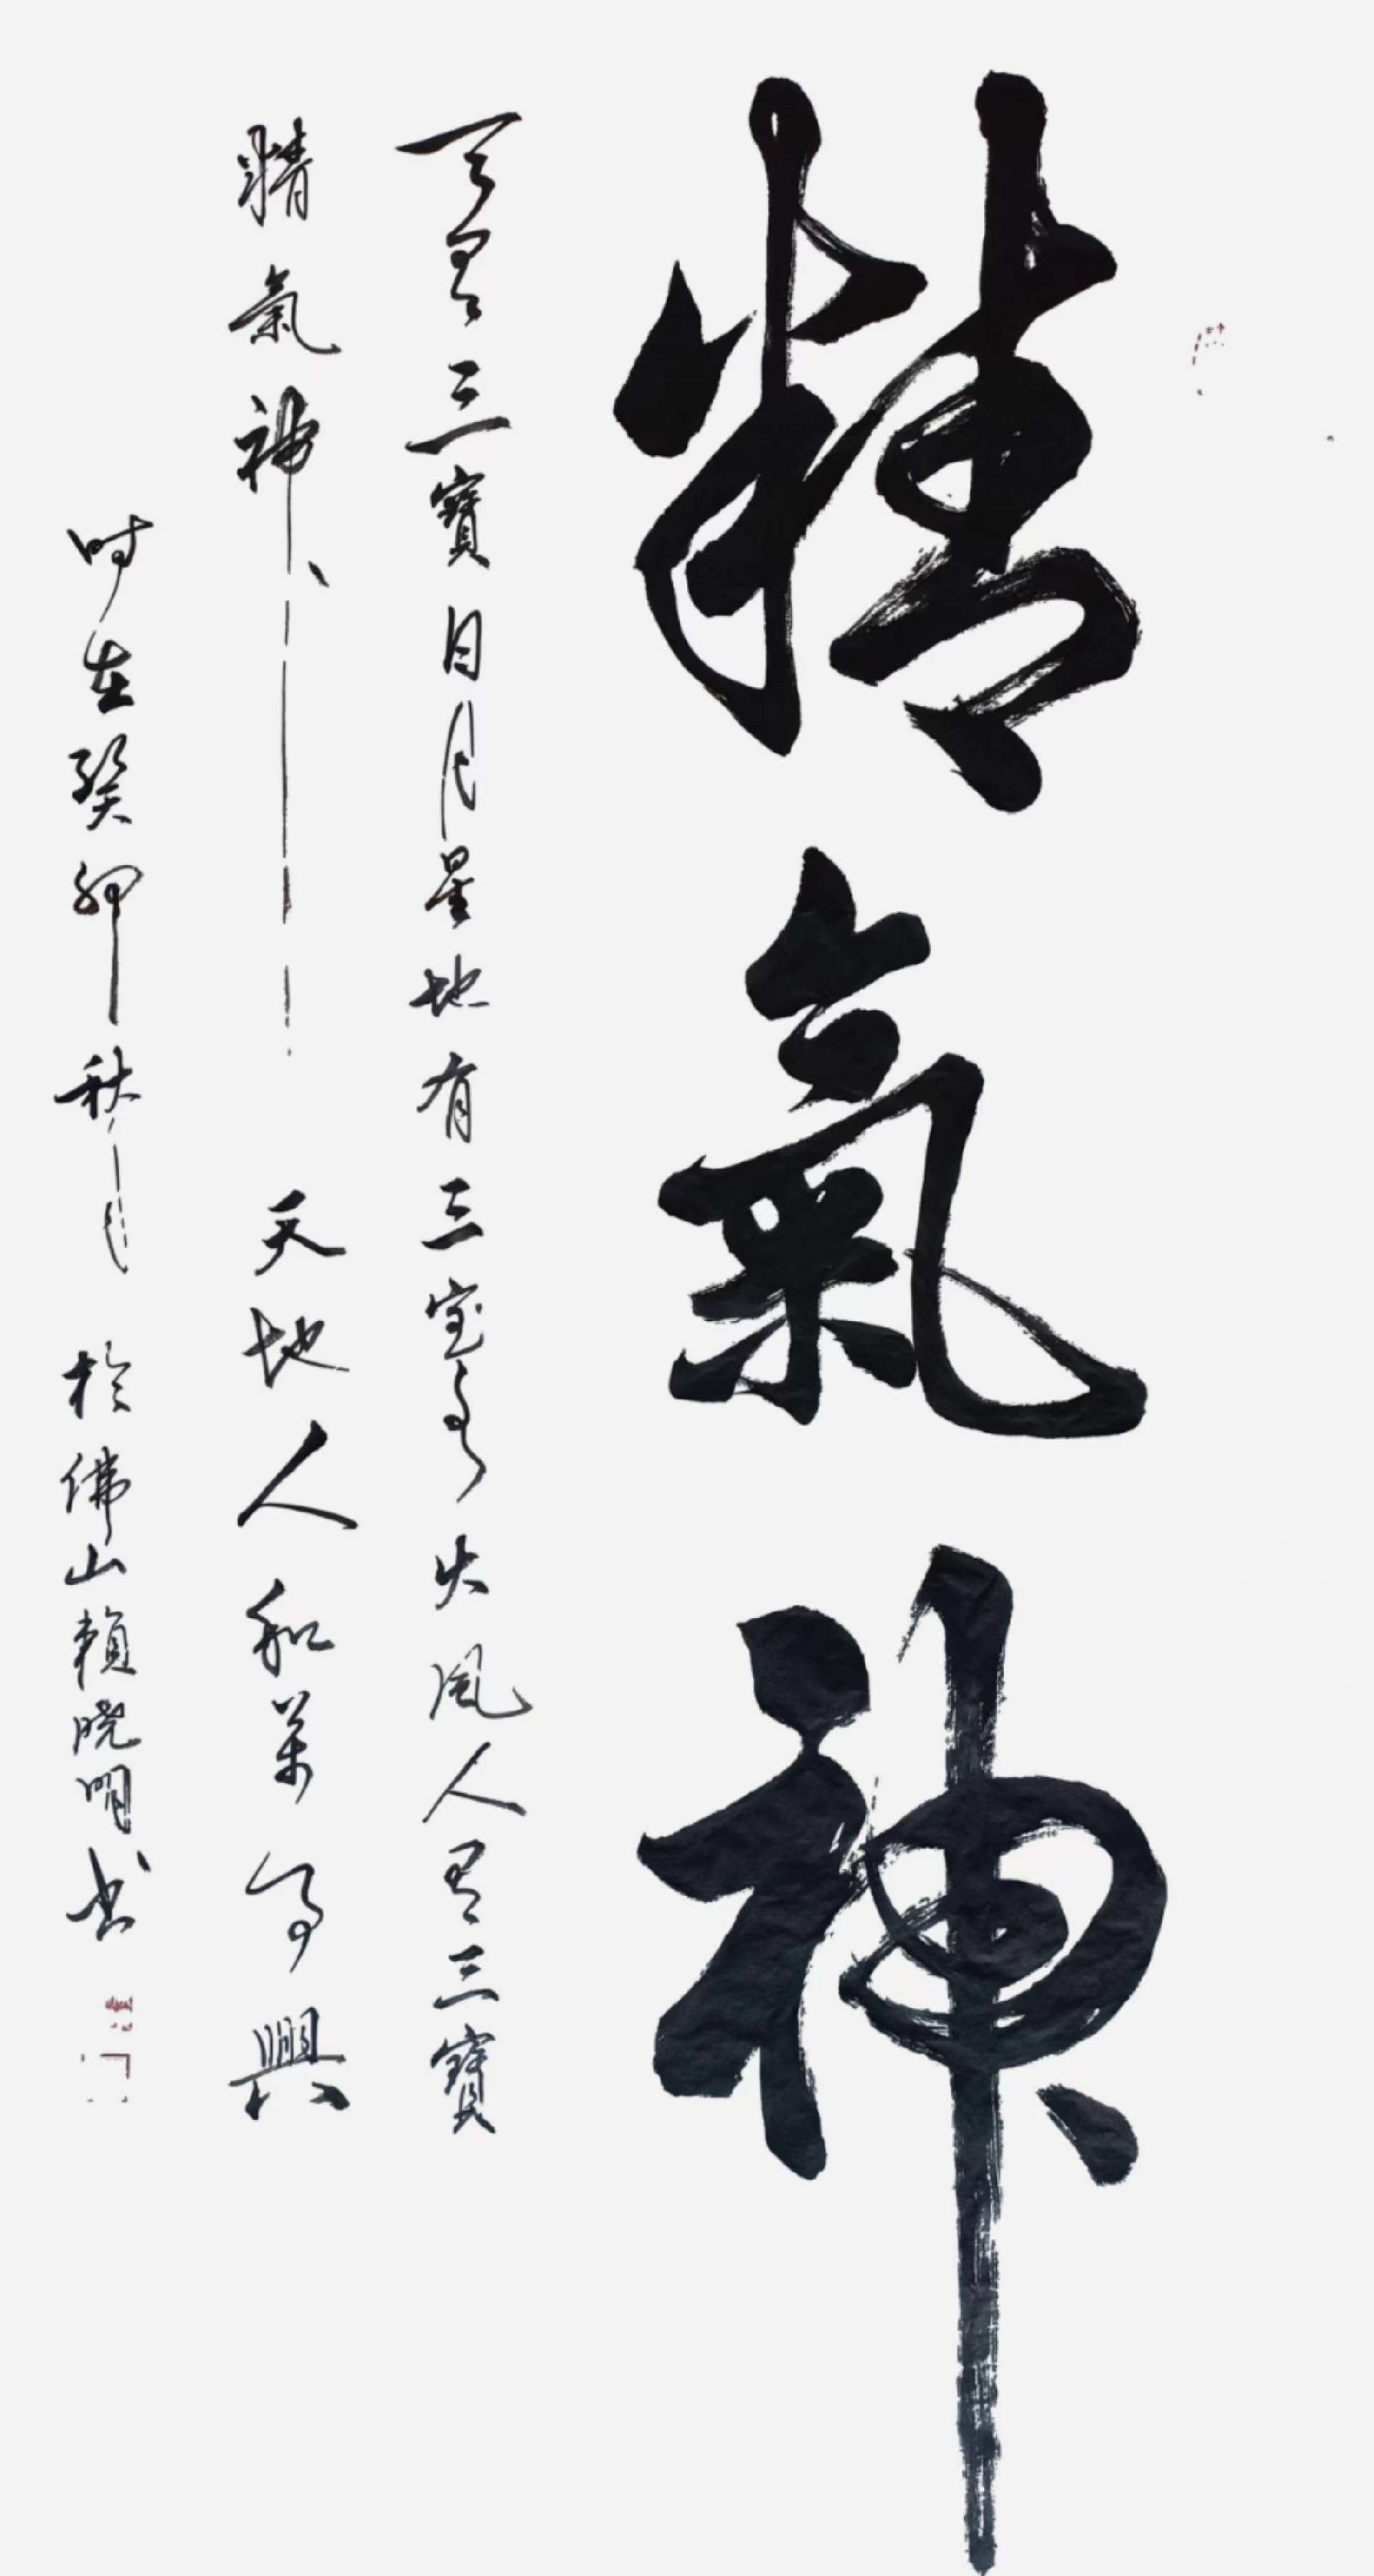 精氣神
天有三寶日月星地有三宝水火风人有三寶
精氣神天地人和萬事興
时在癸卯秋月於佛山賴晓明书